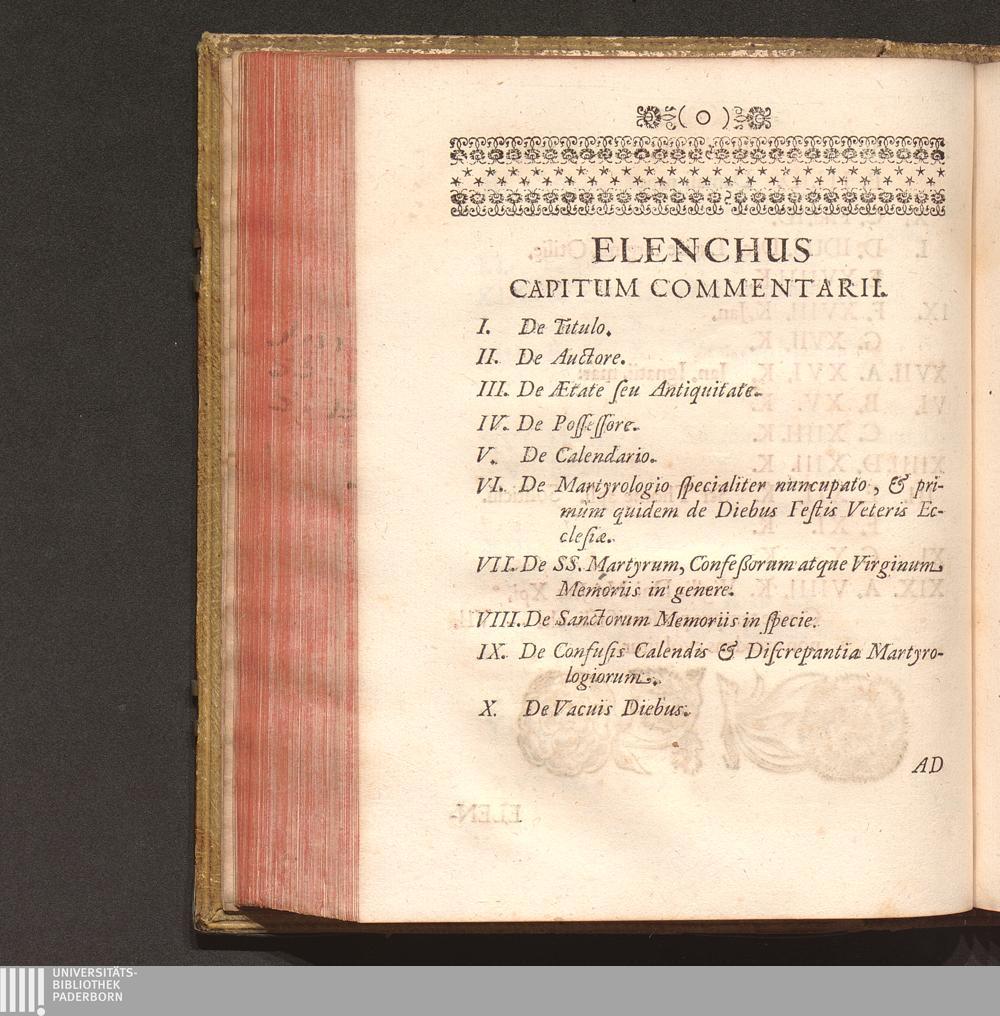 ( O )
ELENCHUS
CAPITUM COMMENTARII.
I. De Titulo.
II. De Auctore.
III. De Ætate ſeu Antiquitate.
IV. De Poſſeſſore.
V. De Calendario.
VI. De Martyrologio ſpecialiter nuncupato, & pri-
mùm quidem de Diebus Feſtis Veteris Ec-
cleſiæ.
VII. De SS. Martyrum, Confeßorum atque Virginum
Memoriis in genere.
VIII. De Sanctorum Memoriis in ſpecie.
IX. De Confuſis Calendis & Diſcrepantia Martyro-
logiorum.
X. De Vacuis Diebus.
AD
UNIVERSITÄTS-
BIBLIOTHEK
PADERBORN